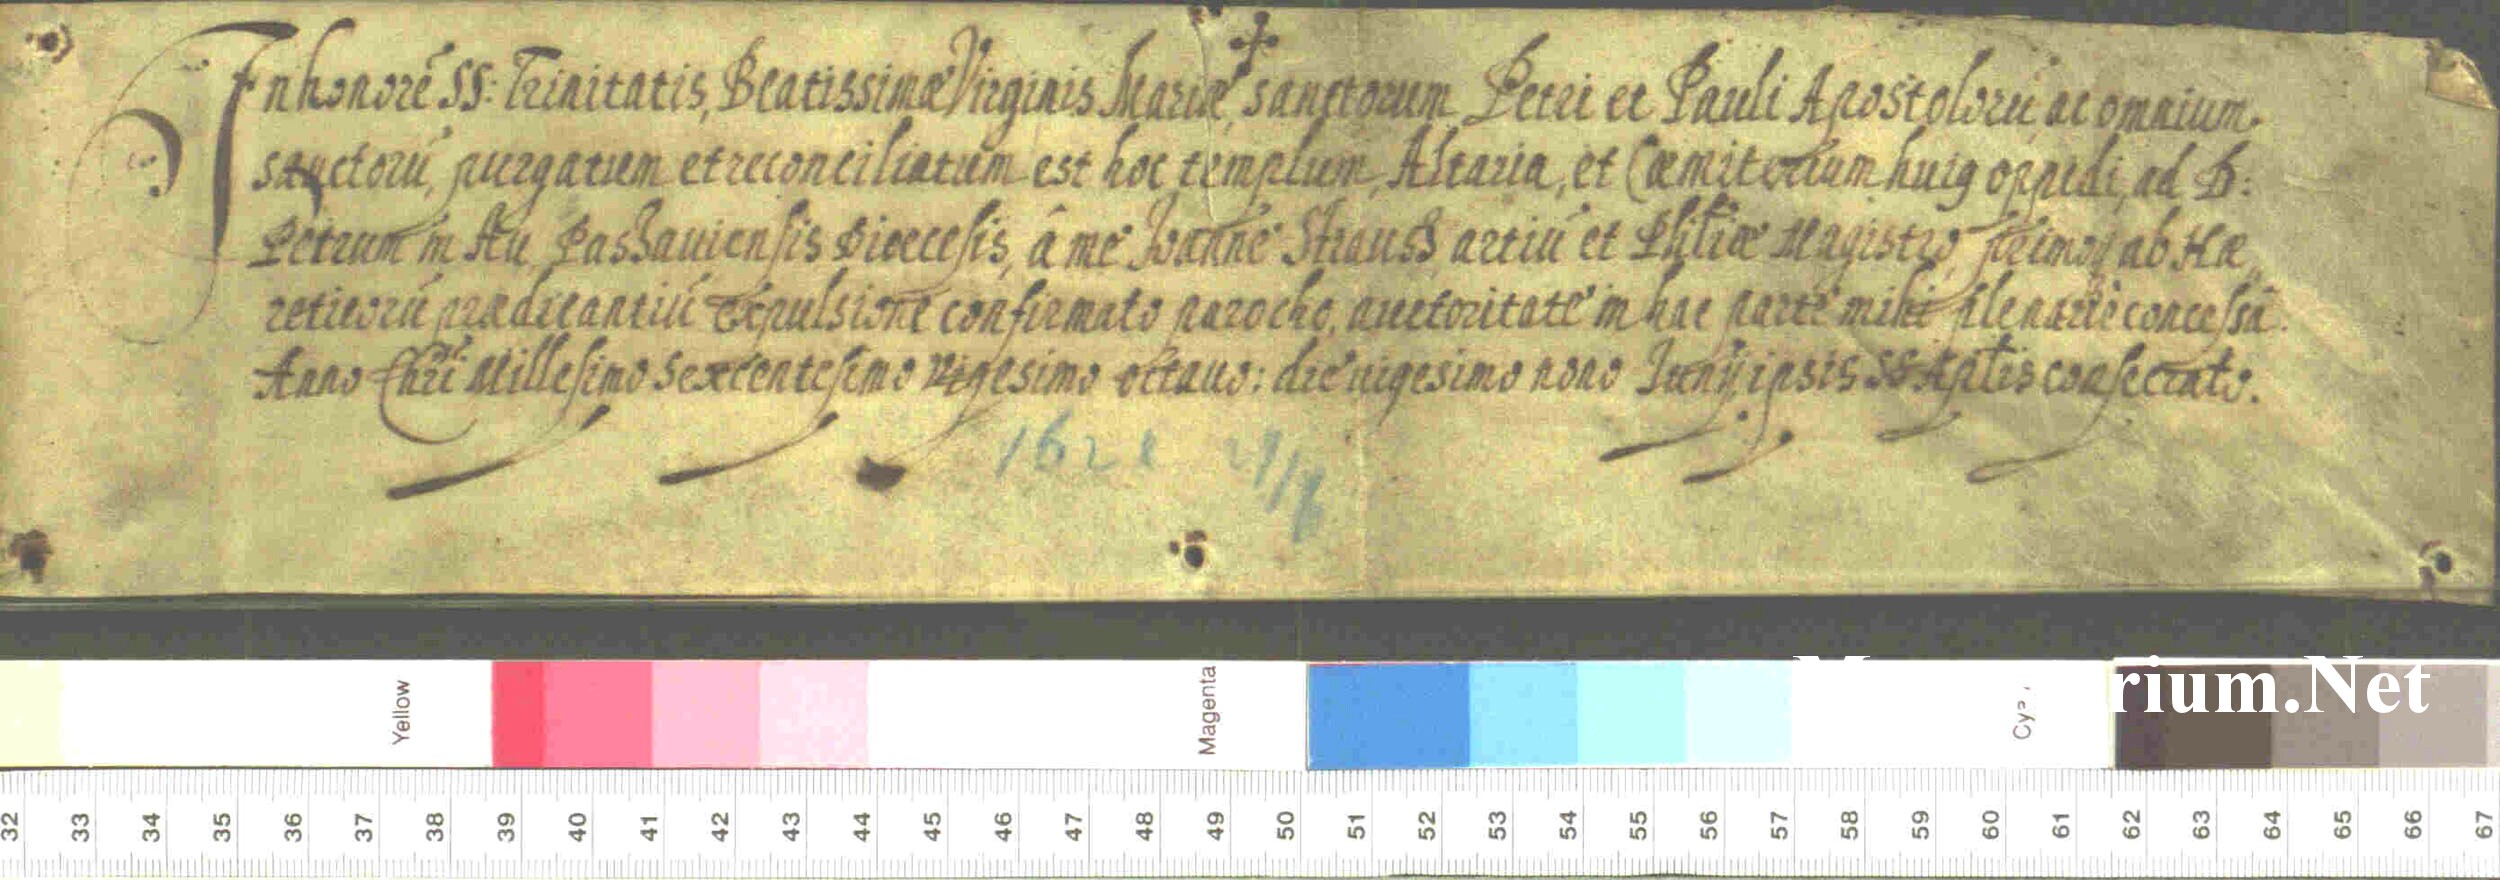 ✝
In honore SS: Trinitatis, Beatissimæ Virginis Mariæ, sanctorum Petri et Pauli Apostolorū, ac omnium
sanctorū, purgatum et reconciliatum est hoc templum, Altaria, et Cœmiterium huiꝰ oppidi, ad B:
Petrum in Au, Passauiensis Diœcesis, â me Joanne Strauss artiū et Philiæ Magistro, primoꝗ ab Hæ„
reticorū prædicantiū expulsione confirmato parocho, auctoritate in hac parte mihi plenarie concessa.
Anno Chri Millesimo Sexcentesimo Vigesimo octauo: die uigesimo nono Junij, ipsis SS Aplis consecrato.
1628 29/6
Yellow
Magenta
rium.Net
32 33 34 35 36 37 38 39 40 41 42 43 44 45 46 47 48 49 50 51 52 53 54 55 56 57 58 59 60 61 62 63 64 65 66 67